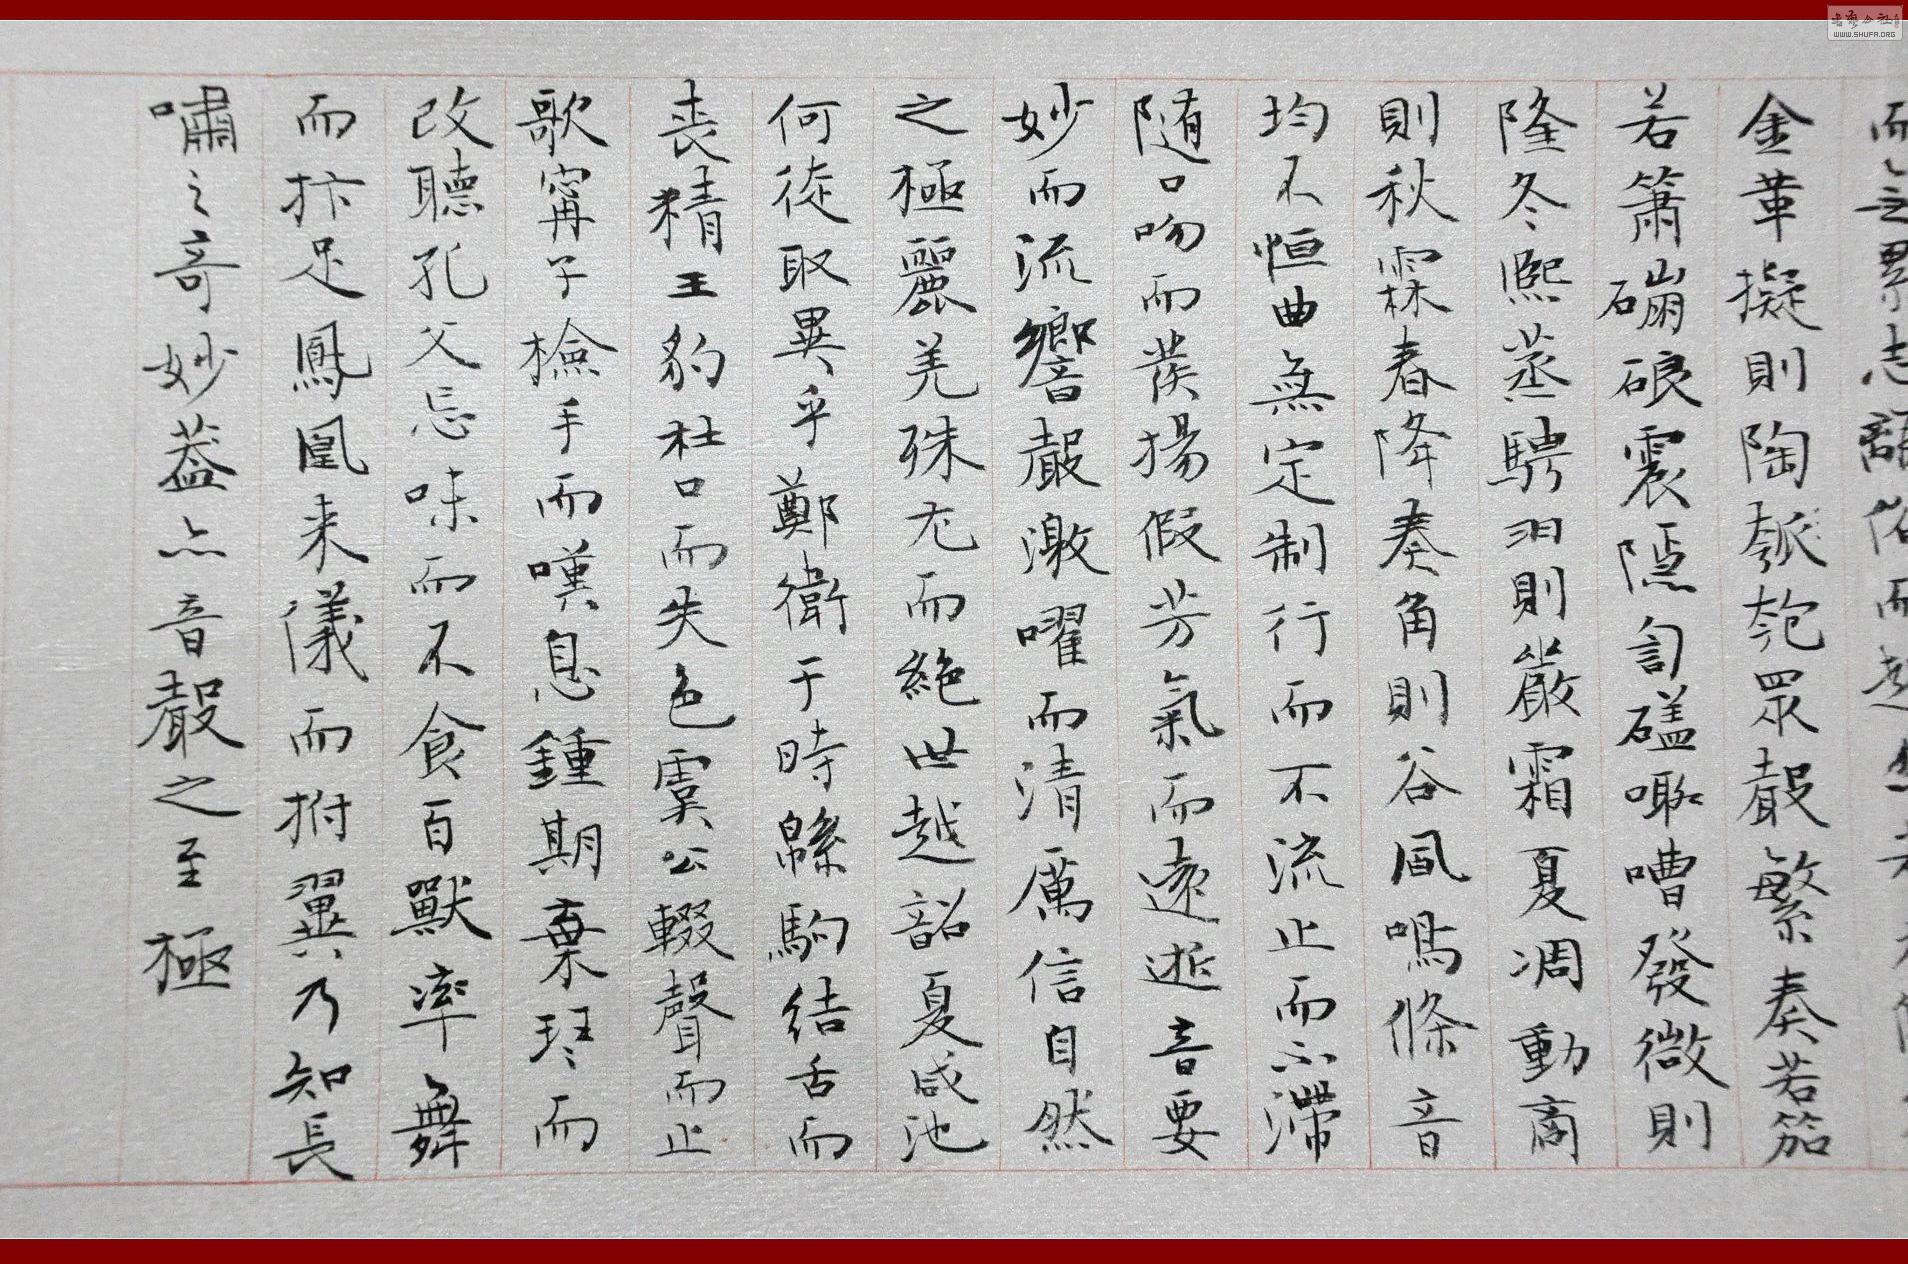 而無累志離俗而
金革擬則陶匏匏眾聲繁奏若笳
若簫磞硠震隱訇礚㗲嘈發徵則
隆冬熙蒸騁羽則嚴霜夏凋動商
則秋霖春降奏角則谷風鳴條音
均不恒曲無定制行而不流止而不滯
隨口吻而發揚假芳氣而遠逝音要
妙而流響聲激曜而清厲信自然
之極麗羌殊尤而絕世越韶夏咸池
何徒取異乎鄭衛于時緜駒結舌而
喪精王豹杜口而失色虞公輟聲而止
歌甯子檢手而嘆息鍾期棄琴而
改聽孔父忘味而不食百獸率舞
而抃足鳳凰来儀而拊翼乃知長
嘯之奇妙蓋亦音聲之至極
書藝公社
WWW.SHUFA.ORG